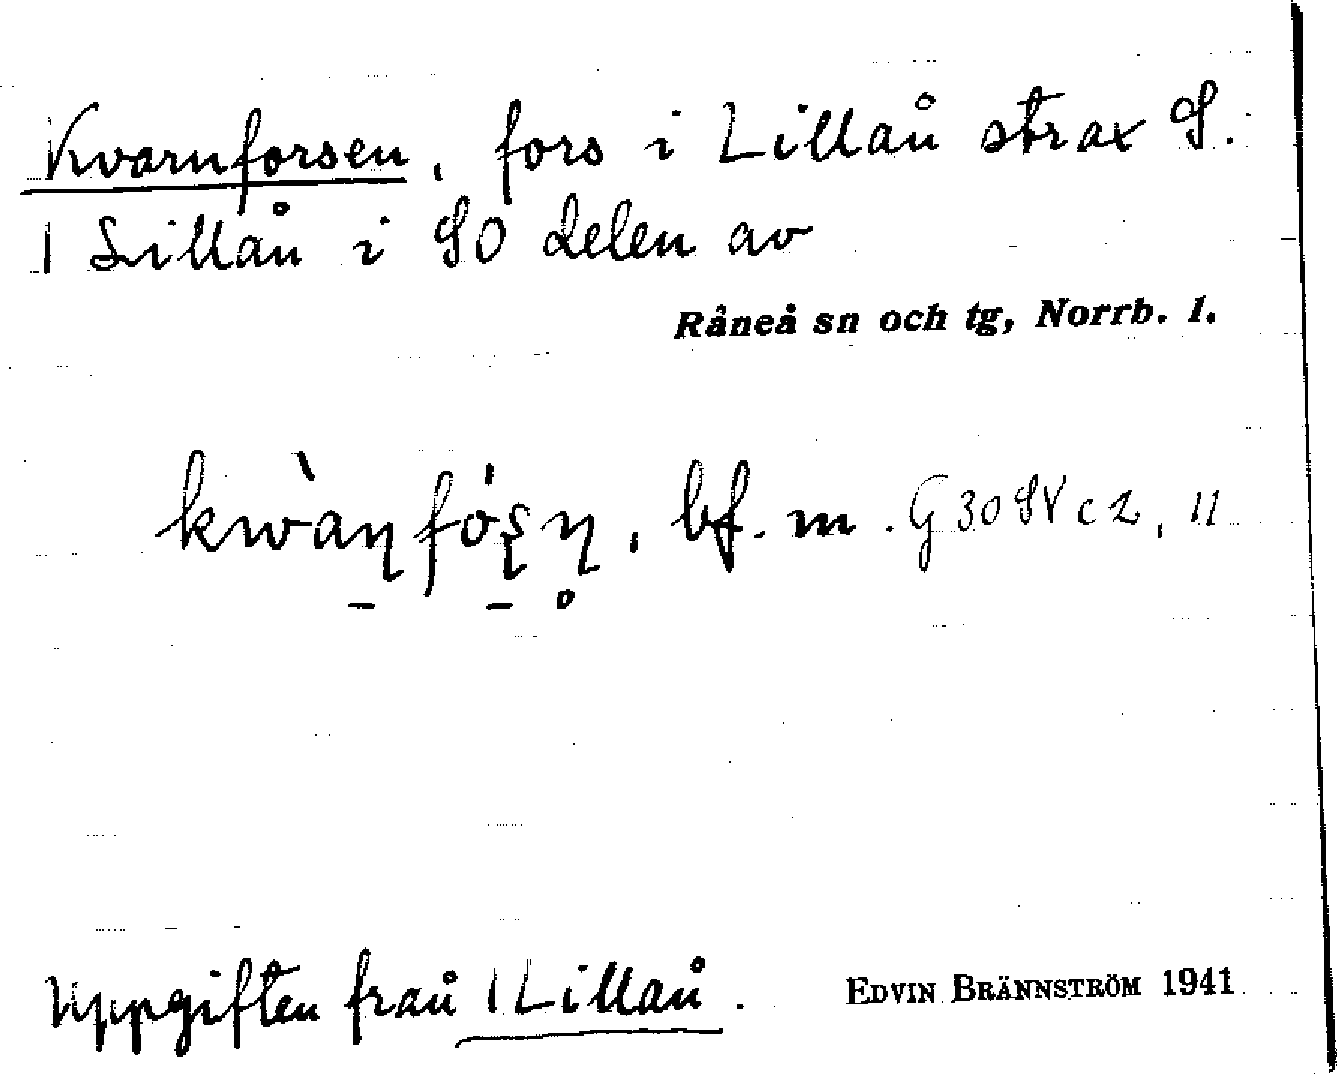 Kvarnforsen, fors i Lillån strax S.
1 Lillån i SO delen av
Råneå sn och tg, Norrb. l.
kwàɳfó̱ʂɳ̥, bf. m. G 30 SV c 2, 11
Uppgiften från 1 Lillån.
EDVIN BRÄNNSTRÖM 1941